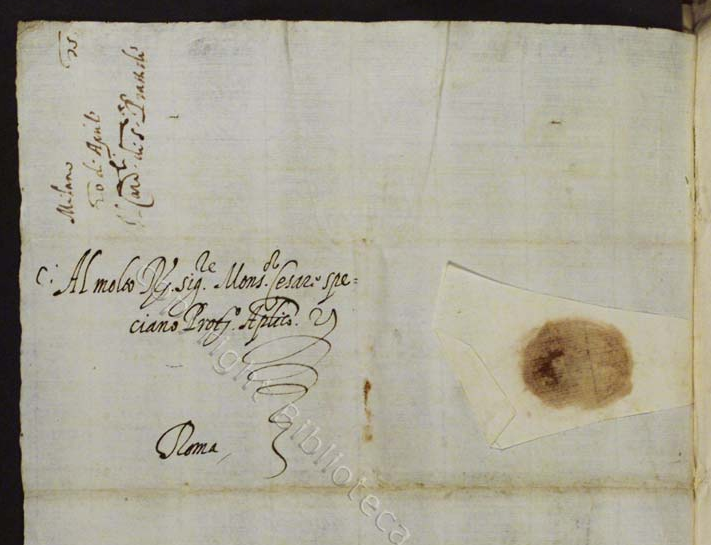 75
Milano
20 d'Aprile
Card.le di S. Prassede
Al molto R. sig.re Mons.or Cesare Spe=
ciano Prot.o Aplico.
Roma,
Copyright Biblioteca